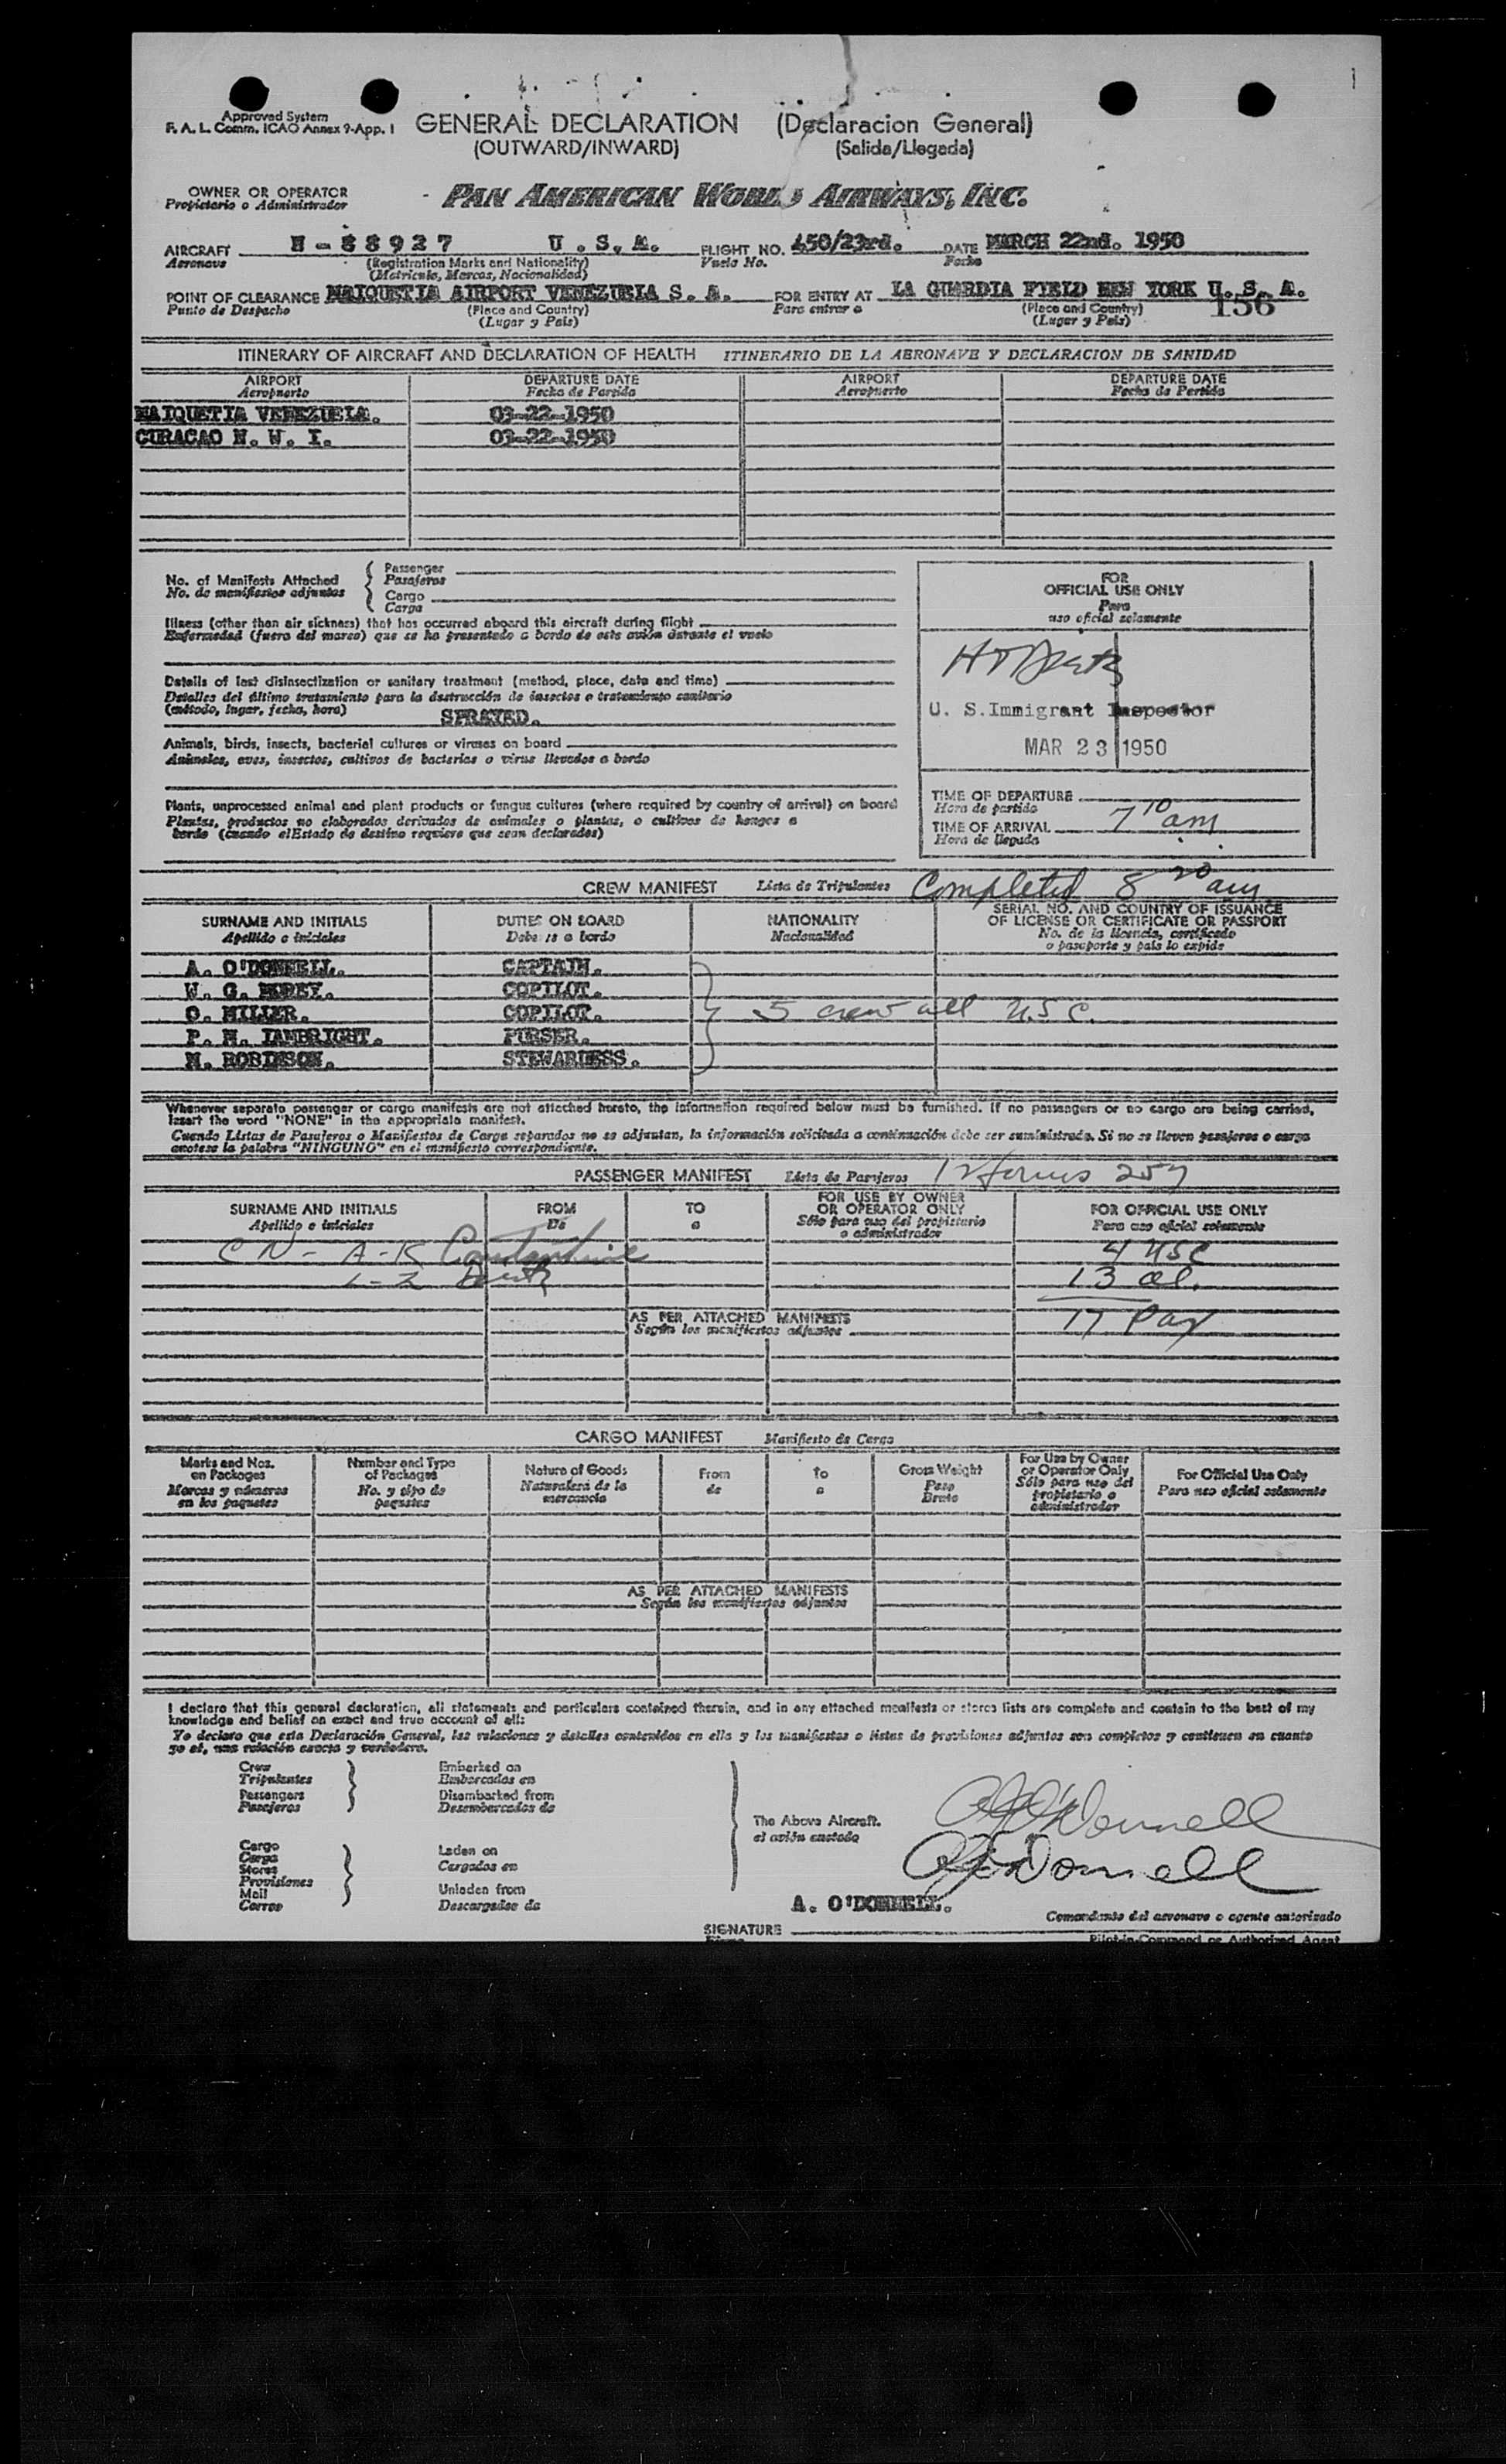 Approved System
F. A. L. Comm. ICAO Annex 9-App. 1
GENERAL DECLARATION (Declaracion General)
(OUTWARD/INWARD) (Salida/Llegada)
OWNER OR OPERATOR
Propietario o Administrador
PAN AMERICAN WORLD AIRWAYS, INC.
AIRCRAFT N-88927 U.S.A. FLIGHT NO. 450/23rd. DATE MARCH 22nd. 1950
Aeronave (Registration Marks and Nationality) Vuelo No. Fecha
(Matricula, Marcas, Nacionalidad)
POINT OF CLEARANCE MAIQUETIA AIRPORT VENEZUELA S. A. FOR ENTRY AT LA GUARDIA FIELD NEW YORK U. S. A.
Punto de Despacho (Place and Country) Para entrar a (Place and Country) 156
(Lugar y Pais) (Lugar y Pais)
ITINERARY OF AIRCRAFT AND DECLARATION OF HEALTH ITINERARIO DE LA AERONAVE Y DECLARACION DE SANIDAD
AIRPORT DEPARTURE DATE AIRPORT DEPARTURE DATE
Aeropuerto Fecha de Partida Aeropuerto Fecha de Partida
MAIQUETIA VENEZUELA. 03-22-1950
CURACAO N. W. I. 03-22-1950
No. of Manifests Attached
No. de manifiestos adjuntos
Passenger
Pasajeros
Cargo
Carga
Illness (other than air sickness) that has occurred aboard this aircraft during flight
Enfermedad (fuera del mareo) que se ha presentado a bordo de este avión durante el vuelo
Details of last disinsectization or sanitary treatment (method, place, date and time)
Detalles del último tratamiento para la destrucción de insectos o tratamiento sanitario
(método, lugar, fecha, hora)
SPRAYED.
Animals, birds, insects, bacterial cultures or viruses on board
Animales, aves, insectos, cultivos de bacterias o virus llevados a bordo
Plants, unprocessed animal and plant products or fungus cultures (where required by country of arrival) on board
Plantas, productos no elaborados derivados de animales o plantas, o cultivos de hongos a
bordo (cuando el Estado de destino requiere que sean declarados)
FOR
OFFICIAL USE ONLY
Para
uso oficial solamente
U. S. Immigrant Inspector
MAR 23 1950
TIME OF DEPARTURE
Hora de partida
TIME OF ARRIVAL 7 10 am
Hora de llegada
CREW MANIFEST Lista de Tripulantes Completed 8 20 am
SURNAME AND INITIALS DUTIES ON BOARD NATIONALITY SERIAL NO. AND COUNTRY OF ISSUANCE
OF LICENSE OR CERTIFICATE OR PASSPORT
Apellido e iniciales Deberes a bordo Nacionalidad No. de la licencia, certificado
o pasaporte y pais lo expide
A. O'DONNELL. CAPTAIN.
W. G. COPILOT.
O. MILLER. COPILOT. 5 crew all U.S.C.
P. H. LAMBRIGHT. PURSER.
M. ROBINSON. STEWARDESS.
Whenever separate passenger or cargo manifests are not attached hereto, the information required below must be furnished. If no passengers or no cargo are being carried,
insert the word "NONE" in the appropriate manifest.
Cuando Listas de Pasajeros o Manifiestos de Carga separados no se adjuntan, la información solicitada a continuación debe ser suministrada. Si no se lleven pasajeros o carga
anotese la palabra "NINGUNO" en el manifiesto correspondiente.
PASSENGER MANIFEST Lista de Pasajeros 12 forms 257
SURNAME AND INITIALS FROM TO FOR USE BY OWNER
OR OPERATOR ONLY FOR OFFICIAL USE ONLY
Apellido e iniciales De a Sólo para uso del propietario
o administrador Para uso oficial solamente
CN - A-K Constantine 4 USC
L-Z 13 al.
AS PER ATTACHED MANIFESTS 17 Pax
Según los manifiestos adjuntos
CARGO MANIFEST Manifiesto de Carga
Marks and Nos.
on Packages
Marcas y números
en los paquetes
Number and Type
of Packages
No. y tipo de
paquetes
Nature of Goods
Naturaleza de la
mercancia
From
de
To
a
Gross Weight
Peso
Bruto
For Use by Owner
or Operator Only
Sólo para uso del
propietario o
administrador
For Official Use Only
Para uso oficial solamente
AS PER ATTACHED MANIFESTS
Según los manifiestos adjuntos
I declare that this general declaration, all statements and particulars contained therein, and in any attached manifests or stores lists are complete and contain to the best of my
knowledge and belief an exact and true account of all:
Yo declaro que esta Declaración General, las relaciones y detalles contenidos en ella y los manifiestos o listas de provisiones adjuntos son completos y contienen en cuanto
yo sé, una relación exacta y verdadera.
Crew
Tripulantes
Passengers
Pasajeros
Embarked on
Embarcados en
Disembarked from
Desembarcados de
Cargo
Carga
Stores
Provisiones
Mail
Correo
Laden on
Cargados en
Unladen from
Descargados de
The Above Aircraft.
el avión anotado
O'Donnell
O'Donnell
A. O'DONNELL.
Comandante del aeronave o agente autorizado
SIGNATURE
Firma
Pilot-in-Command or Authorized Agent